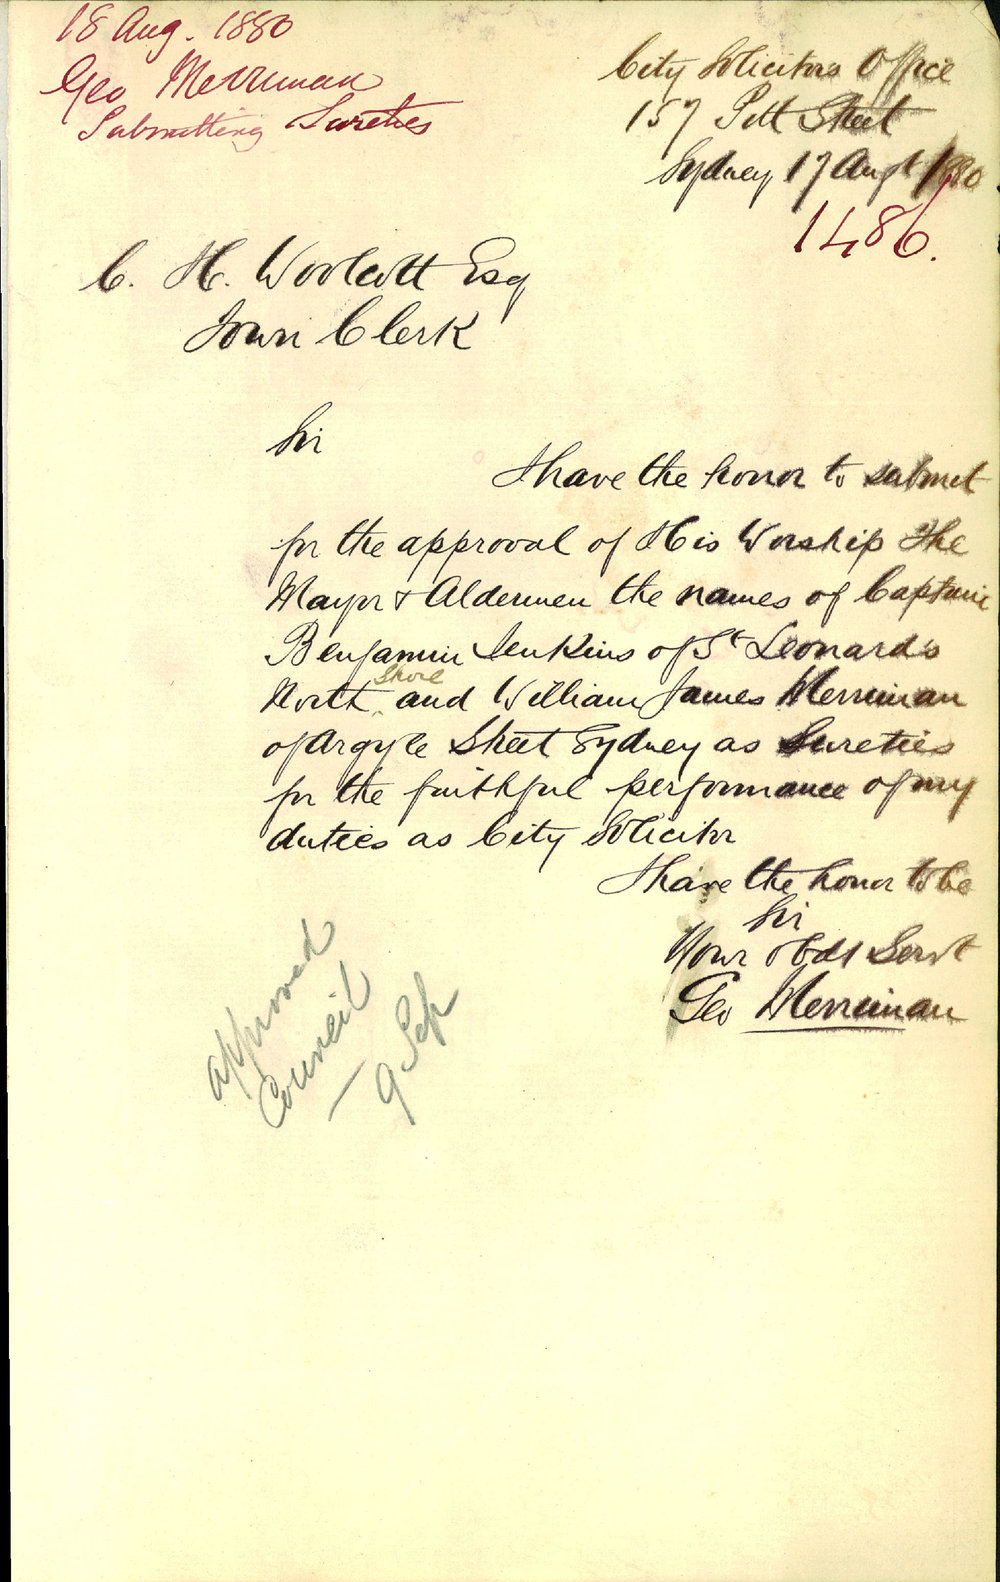 18 Aug. 1880
Geo Merriman
Submitting Sureties
City Solicitors Office
157 Pitt Street
Sydney 17 Augt 1880
1486.
C. H. Woolcott Esq
Town Clerk
Sir
I have the honor to submit
for the approval of His Worship The
Mayor & Aldermen the names of Captain
Benjamin Jenkins of St Leonards
Shore
North and William James Merriman
of Argyle Street Sydney as Sureties
for the faithful performance of my
duties as City Solicitor
I have the honor to be
Sir
Your obdt Servt
Geo Merriman
approved
Council
9 Sep